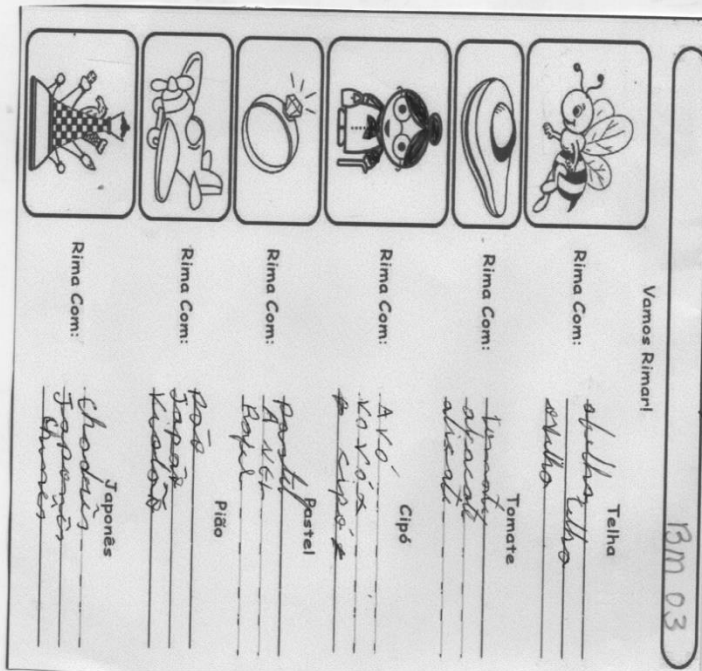 BM 03
Vamos Rimar!
Rima Com:
Telha
abelha
telha
ovelha
Rima Com:
Tomate
tomate
abacate
alicate
Rima Com:
Cipó
Avó
vovó
cipó
Rima Com:
Pastel
Pastel
Anel
Papel
Rima Com:
Pião
Pão
Japão
violão
Rima Com:
Japonês
Chadrês
Japonês
chinês